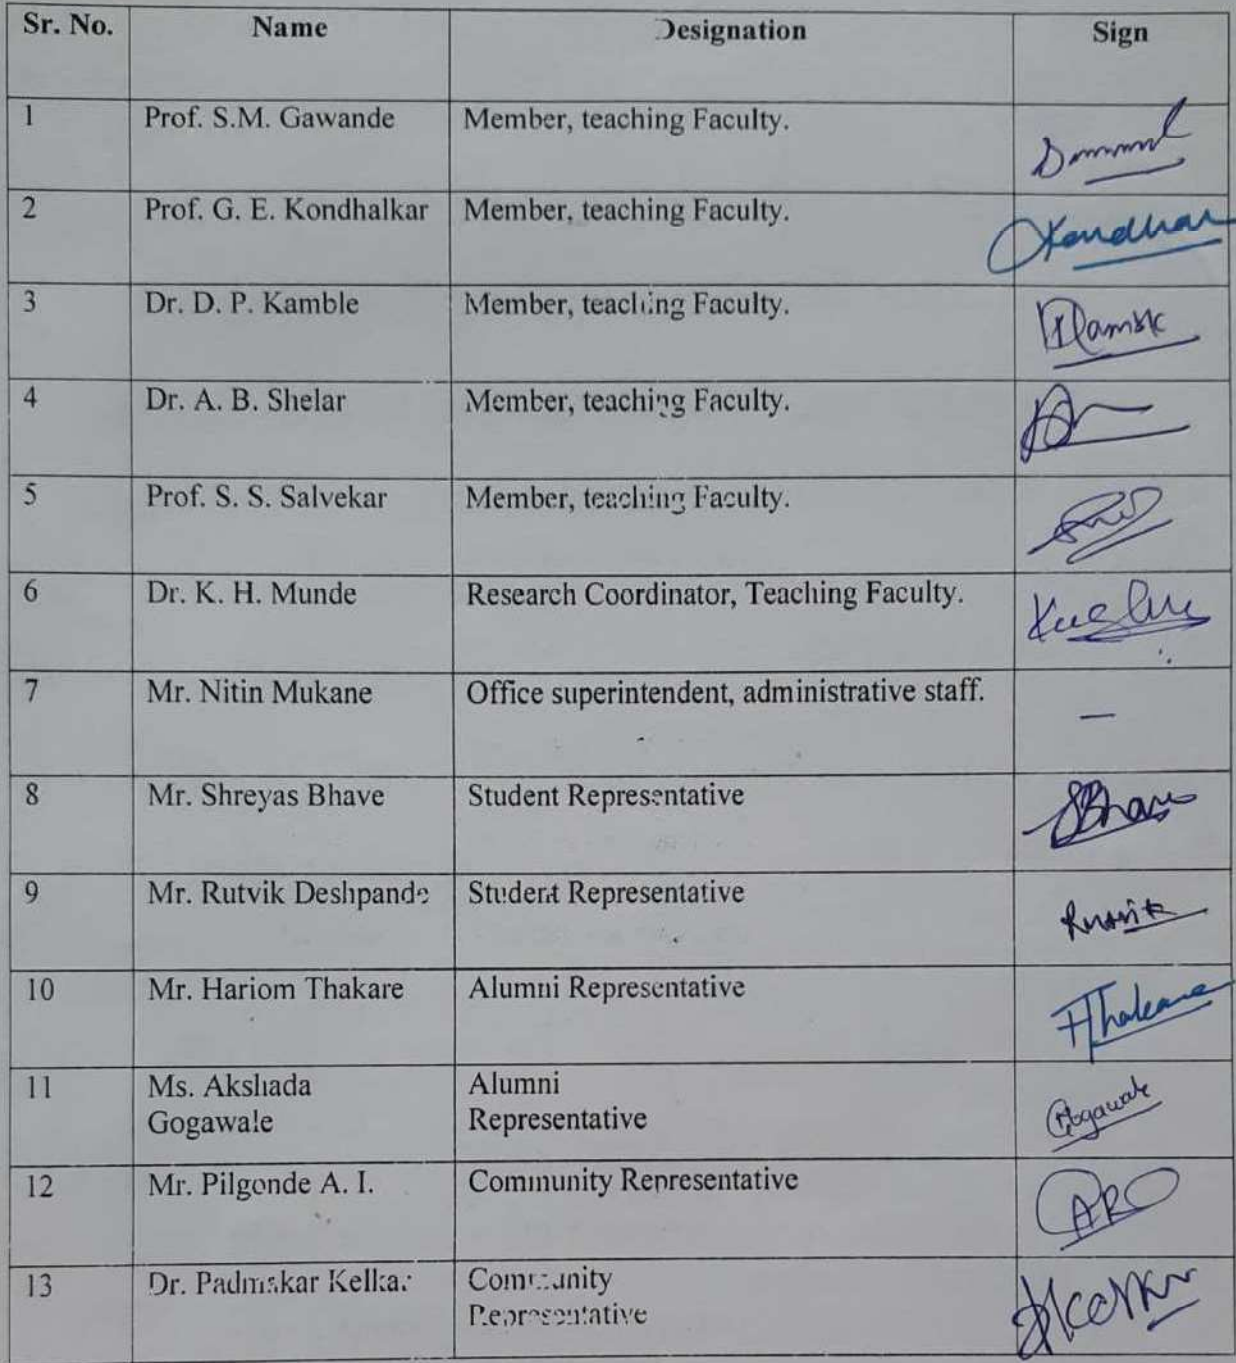 Sr. No. Name Designation Sign
1 Prof. S.M. Gawande Member, teaching Faculty.
2 Prof. G. E. Kondhalkar Member, teaching Faculty.
3 Dr. D. P. Kamble Member, teaching Faculty.
4 Dr. A. B. Shelar Member, teaching Faculty.
5 Prof. S. S. Salvekar Member, teaching Faculty.
6 Dr. K. H. Munde Research Coordinator, Teaching Faculty.
7 Mr. Nitin Mukane Office superintendent, administrative staff. —
8 Mr. Shreyas Bhave Student Representative
9 Mr. Rutvik Deshpande Student Representative
10 Mr. Hariom Thakare Alumni Representative Thakare
11 Ms. Akshada Alumni Gogawale
Gogawale Representative
12 Mr. Pilgonde A. I. Community Representative
13 Dr. Padmakar Kelkar Community
Representative